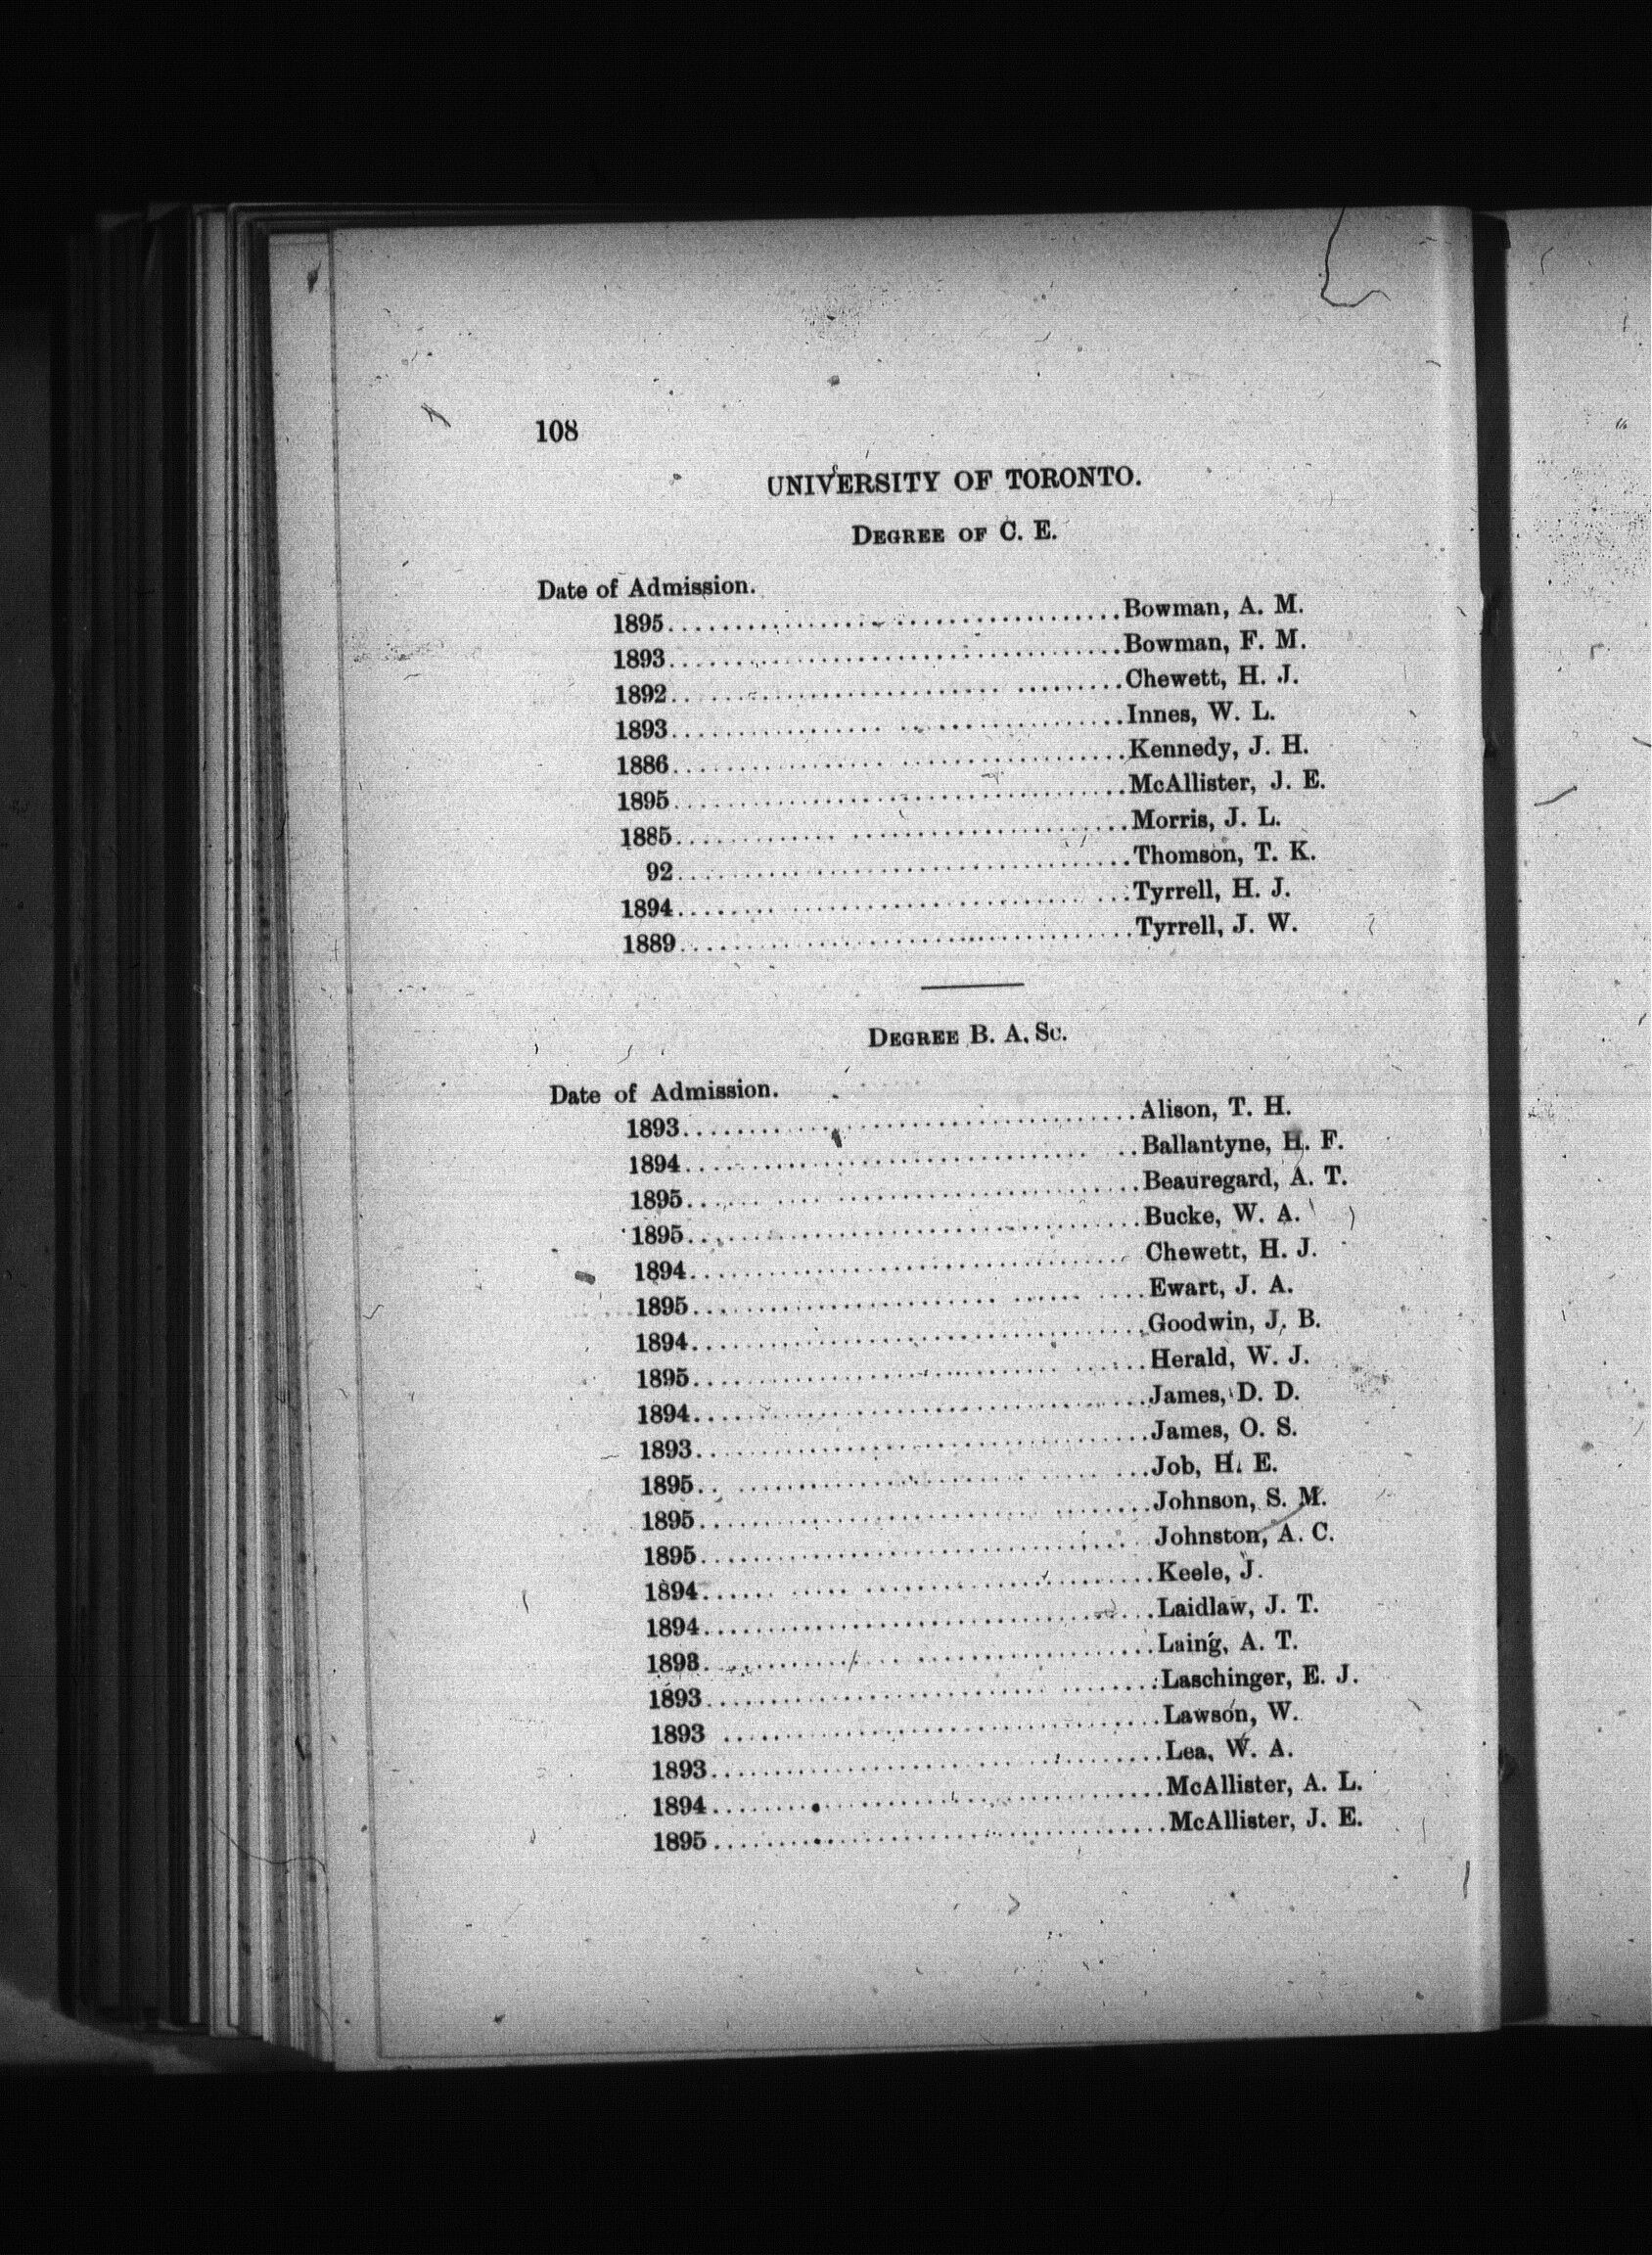 108
UNIVERSITY OF TORONTO.
DEGREE OF C. E.
Date of Admission.
1895........................................Bowman, A. M.
1893........................................Bowman, F. M.
1892........................................Chewett, H. J.
1893........................................Innes, W. L.
1886........................................Kennedy, J. H.
1895........................................McAllister, J. E.
1885........................................Morris, J. L.
92........................................Thomson, T. K.
1894........................................Tyrrell, H. J.
1889........................................Tyrrell, J. W.
DEGREE B. A. Sc.
Date of Admission.
1893........................................Alison, T. H.
1894........................................Ballantyne, H. F.
1895........................................Beauregard, A. T.
1895........................................Bucke, W. A.
1894........................................Chewett, H. J.
1895........................................Ewart, J. A.
1894........................................Goodwin, J. B.
1895........................................Herald, W. J.
1894........................................James, D. D.
1893........................................James, O. S.
1895........................................Job, H. E.
1895........................................Johnson, S. M.
1895........................................Johnston, A. C.
1894........................................Keele, J.
1894........................................Laidlaw, J. T.
1893........................................Laing, A. T.
1893........................................Laschinger, E. J.
1893 ........................................Lawson, W.
1893........................................Lea, W. A.
1894........................................McAllister, A. L.
1895........................................McAllister, J. E.